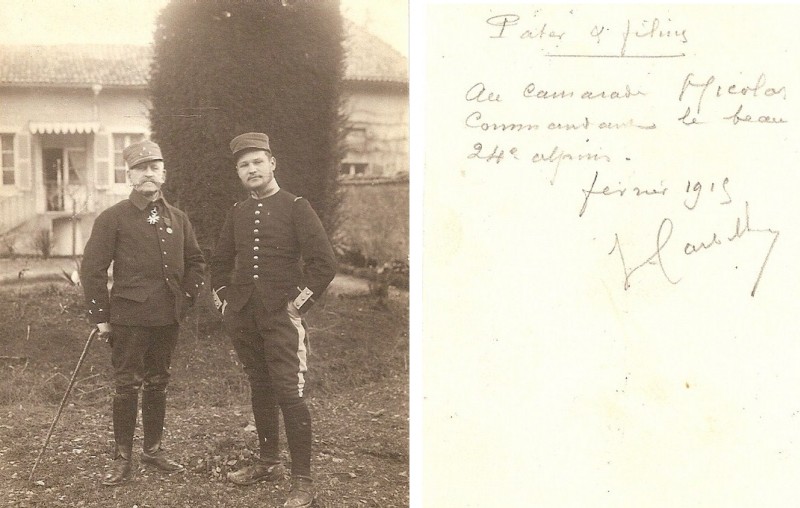 Pater & filius
Au camarade Nicolas
Commandant le beau
24e alpins.
février 1915